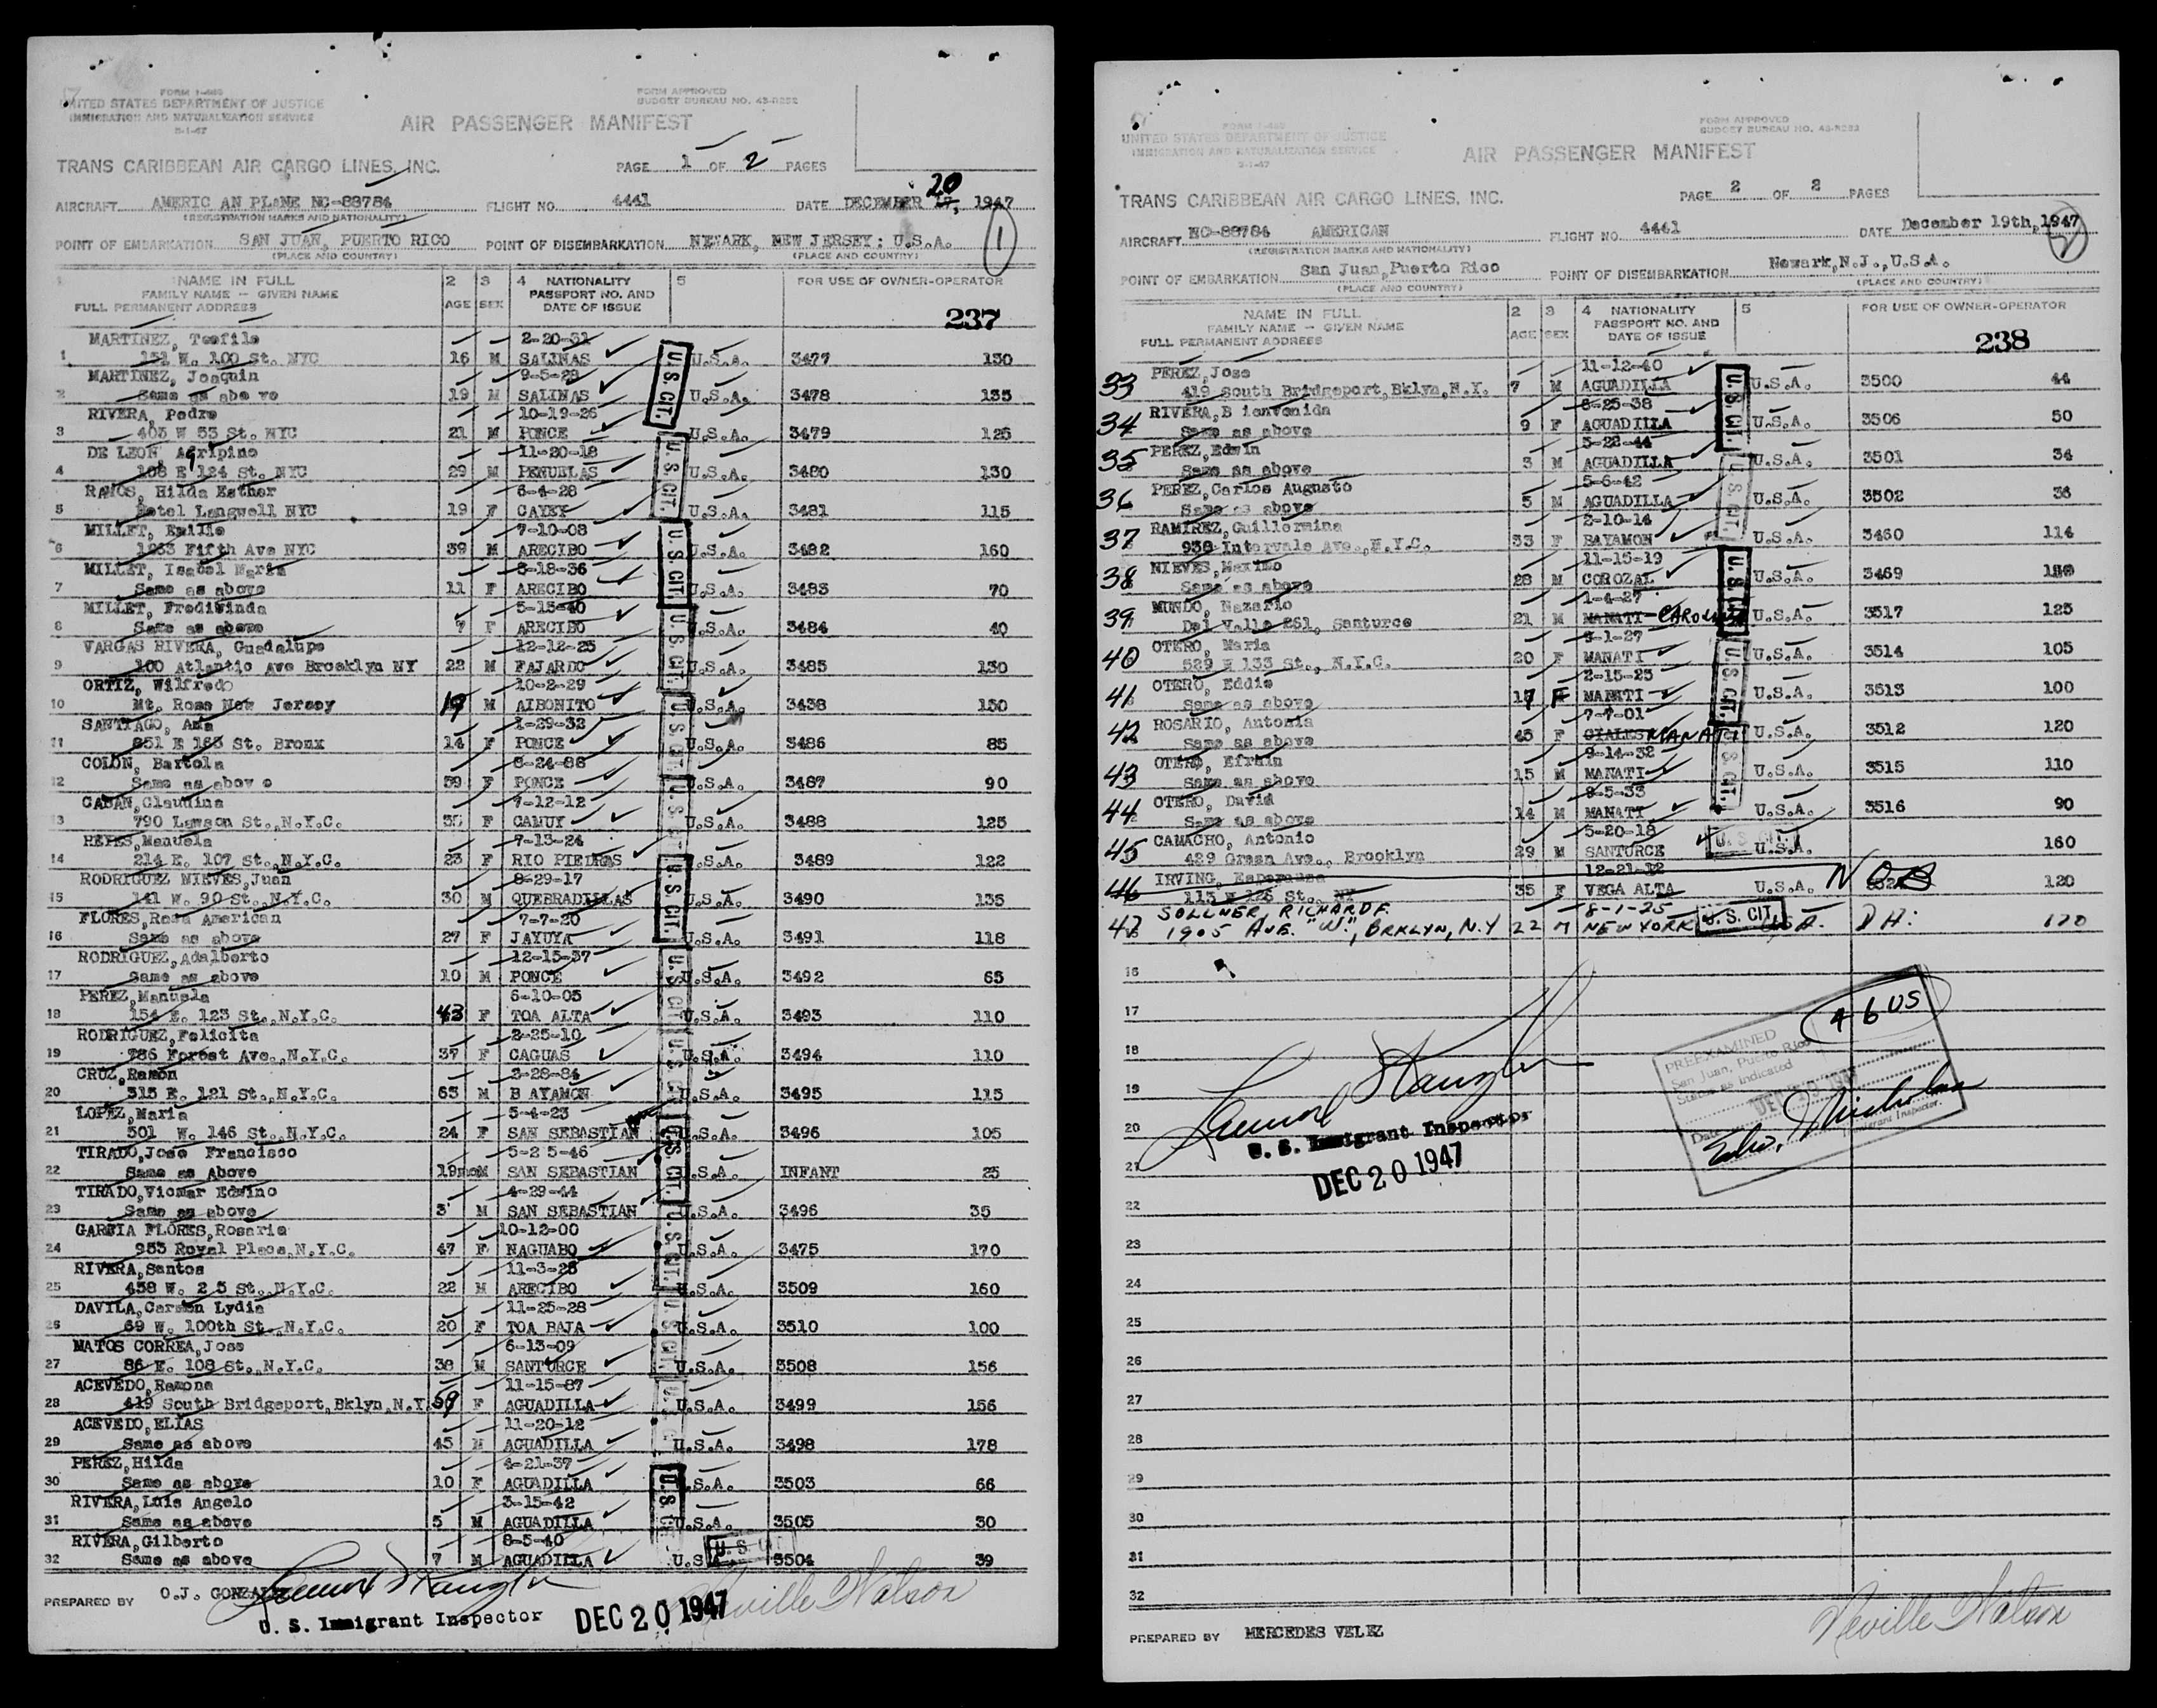 FORM I-466
UNITED STATES DEPARTMENT OF JUSTICE
IMMIGRATION AND NATURALIZATION SERVICE
FORM APPROVED
BUDGET BUREAU NO. 43-R252
AIR PASSENGER MANIFEST
TRANS CARIBBEAN AIR CARGO LINES, INC. PAGE 1 OF 2 PAGES
AIRCRAFT AMERIC AN PLANE NC-88784 FLIGHT NO. 4441 DATE DECEMBER 20 1947
(REGISTRATION MARKS AND NATIONALITY)
POINT OF EMBARKATION SAN JUAN, PUERTO RICO POINT OF DISEMBARKATION NEWARK, NEW JERSEY: U.S.A. 1
(PLACE AND COUNTRY) (PLACE AND COUNTRY)
NAME IN FULL 2 3 4 NATIONALITY 5 FOR USE OF OWNER-OPERATOR
FAMILY NAME -- GIVEN NAME AGE SEX PASSPORT NO. AND
FULL PERMANENT ADDRESS DATE OF ISSUE 237
MARTINEZ, Teofilo 2-20-31
1 151 W. 100 St. NYC 16 M SALINAS U.S.A. 3477 130
MARTINEZ, Joaquin 9-5-28
2 Same as abo ve 19 M SALINAS U.S.A. 3478 135
RIVERA, Pedro 10-19-26
3 403 W 53 St. NYC 21 M PONCE U.S.A. 3479 125
DE LEON, Agripino 11-20-18
4 108 E 124 St. NYC 29 M PENUELAS U.S.A. 3480 130
RAMOS, Hilda Esther 6-4-28
5 Hotel Langwell NYC 19 F CAYEY U.S.A. 3481 115
MILLET, Emilio 7-10-08
6 1233 Fifth Ave NYC 39 M ARECIBO U.S.A. 3482 160
MILLET, Isabel Maria 8-18-36
7 Same as above 11 F ARECIBO U.S.A. 3483 70
MILLET, Fredivinda 5-15-40
8 Same as above 7 F ARECIBO U.S.A. 3484 40
VARGAS RIVERA, Guadalupe 12-12-25
9 100 Atlantic Ave Brooklyn NY 22 M FAJARDO U.S.A. 3485 130
ORTIZ, Wilfredo 10-2-29
10 Mt. Rose New Jersey 19 M AIBONITO U.S.A. 3438 150
SANTIAGO, Ana 1-29-32
11 851 E 163 St. Bronx 14 F PONCE U.S.A. 3486 85
COLON, Bartola 8-24-88
12 Same as abov e 59 F PONCE U.S.A. 3487 90
CABAN, Claudina 7-12-12
13 790 Lawson St., N.Y.C. 35 F CAMUY U.S.A. 3488 125
REYES, Manuela 7-13-24
14 214 E. 107 St., N.Y.C. 23 F RIO PIEDRAS U.S.A. 3489 122
RODRIGUEZ NIEVES, Juan 8-29-17
15 141 W. 90 St., N.Y.C. 30 M QUEBRADILLAS U.S.A. 3490 135
FLORES, Rosa American 7-7-20
16 Same as above 27 F JAYUYA U.S.A. 3491 118
RODRIGUEZ, Adalberto 12-15-37
17 Same as above 10 M PONCE U.S.A. 3492 65
PEREZ, Manuela 6-10-05
18 154 E. 123 St., N.Y.C. 43 F TOA ALTA U.S.A. 3493 110
RODRIGUEZ, Felicita 2-25-10
19 786 Forest Ave., N.Y.C. 37 F CAGUAS U.S.A. 3494 110
CRUZ, Ramon 3-28-84
20 315 E. 121 St., N.Y.C. 63 M B AYAMON U.S.A. 3495 115
LOPEZ, Maria 5-4-23
21 501 W. 146 St., N.Y.C. 24 F SAN SEBASTIAN U.S.A. 3496 105
TIRADO, Jose Francisco 5-2 5-46
22 Same as Above 19mos M SAN SEBASTIAN U.S.A. INFANT 25
TIRADO, Viomar Edwino 4-29-44
23 Same as above 3 M SAN SEBASTIAN U.S.A. 3496 35
GARCIA FLORES, Rosaria 10-12-00
24 953 Royal Place, N.Y.C. 47 F NAGUABO U.S.A. 3475 170
RIVERA, Santos 11-3-25
25 458 W. 2 5 St., N.Y.C. 22 M ARECIBO U.S.A. 3509 160
DAVILA, Carmen Lydia 11-25-28
26 69 W. 100th St., N.Y.C. 20 F TOA BAJA U.S.A. 3510 100
MATOS CORREA, Jose 6-13-09
27 86 E. 108 St., N.Y.C. 38 M SANTURCE U.S.A. 3508 156
ACEVEDO, Ramona 11-15-87
28 419 South Bridgeport, Bklyn, N.Y. 59 F AGUADILLA U.S.A. 3499 156
ACEVEDO, ELIAS 11-20-12
29 Same as above 45 M AGUADILLA U.S.A. 3498 178
PEREZ, Hilda 4-21-37
30 Same as above 10 F AGUADILLA U.S.A. 3503 66
RIVERA, Luis Angelo 3-15-42
31 Same as above 5 M AGUADILLA U.S.A. 3505 50
RIVERA, Gilberto 8-5-40
32 Same as above 7 M AGUADILLA U.S.A. 3504 39
U.S. CIT.
PREPARED BY O.J. GONZALEZ
U. S. Immigrant Inspector DEC 20 1947 Neville Watson
UNITED STATES DEPARTMENT OF JUSTICE
IMMIGRATION AND NATURALIZATION SERVICE
FORM APPROVED
BUDGET BUREAU NO. 43-R253
AIR PASSENGER MANIFEST
TRANS CARIBBEAN AIR CARGO LINES, INC. PAGE 2 OF 2 PAGES
AIRCRAFT NC-88784 AMERICAN FLIGHT NO. 4441 DATE December 19th, 1947
(REGISTRATION MARKS AND NATIONALITY) 2
POINT OF EMBARKATION San Juan, Puerto Rico POINT OF DISEMBARKATION Newark, N.J., U.S.A.
(PLACE AND COUNTRY) (PLACE AND COUNTRY)
NAME IN FULL 2 3 4 NATIONALITY 5 FOR USE OF OWNER-OPERATOR
FAMILY NAME -- GIVEN NAME AGE SEX PASSPORT NO. AND
FULL PERMANENT ADDRESS DATE OF ISSUE 238
PEREZ, Jose 11-12-40
33 419 South Bridgeport, Bklyn, N.Y. 7 M AGUADILLA U.S.A. 3500 44
RIVERA, B ienvenida 8-25-38
34 Same as above 9 F AGUADILLA U.S.A. 3506 50
PEREZ, Edwin 5-22-44
35 Same as above 3 M AGUADILLA U.S.A. 3501 34
PEREZ, Carlos Augusto 5-6-42
36 Same as above 5 M AGUADILLA U.S.A. 3502 36
RAMIREZ, Guillermina 2-10-14
37 938 Intervale Ave., N.Y.C. 33 F BAYAMON U.S.A. 3460 114
NIEVES, Maximo 11-15-19
38 Same as above 28 M COROZAL U.S.A. 3469
MUNDO, Nazario 1-4-27
39 Del Valle 261, Santurce 21 M MANATI-CAROLINA U.S.A. 3517 125
OTERO, Maria 3-1-27
40 529 E 133 St., N.Y.C. 20 F MANATI U.S.A. 3514 105
OTERO, Eddie 2-15-25
41 Same as above 17 F MANATI U.S.A. 3513 100
ROSARIO, Antonia 7-7-01
42 Same as above 45 F CIALES MANATI U.S.A. 3512 120
OTERO, Efrain 9-14-32
43 Same as above 15 M MANATI U.S.A. 3515 110
OTERO, David 9-5-33
44 Same as above 14 M MANATI U.S.A. 3516 90
CAMACHO, Antonio 5-20-18
45 429 Green Ave., Brooklyn 29 M SANTURCE U.S.A. 160
IRVING, Esperanza 12-21-12
46 113 E 126 St., NY 35 F VEGA ALTA U.S.A. NOB 120
SOLLNER, RICHARD F. 8-1-25
47 1905 AVE. "W", BRKLYN, N.Y 22 M NEW YORK U.S. CIT. USA. DH: 170
16
17
18
19
20
21
22
23
24
25
26
27
28
29
30
31
32
U. S. Immigrant Inspector
DEC 20 1947
46 US
PREEXAMINED
San Juan, Puerto Rico
Status as indicated
DEC 19 1947
Date
Immigrant Inspector.
Neville Watson
PREPARED BY MERCEDES VELEZ